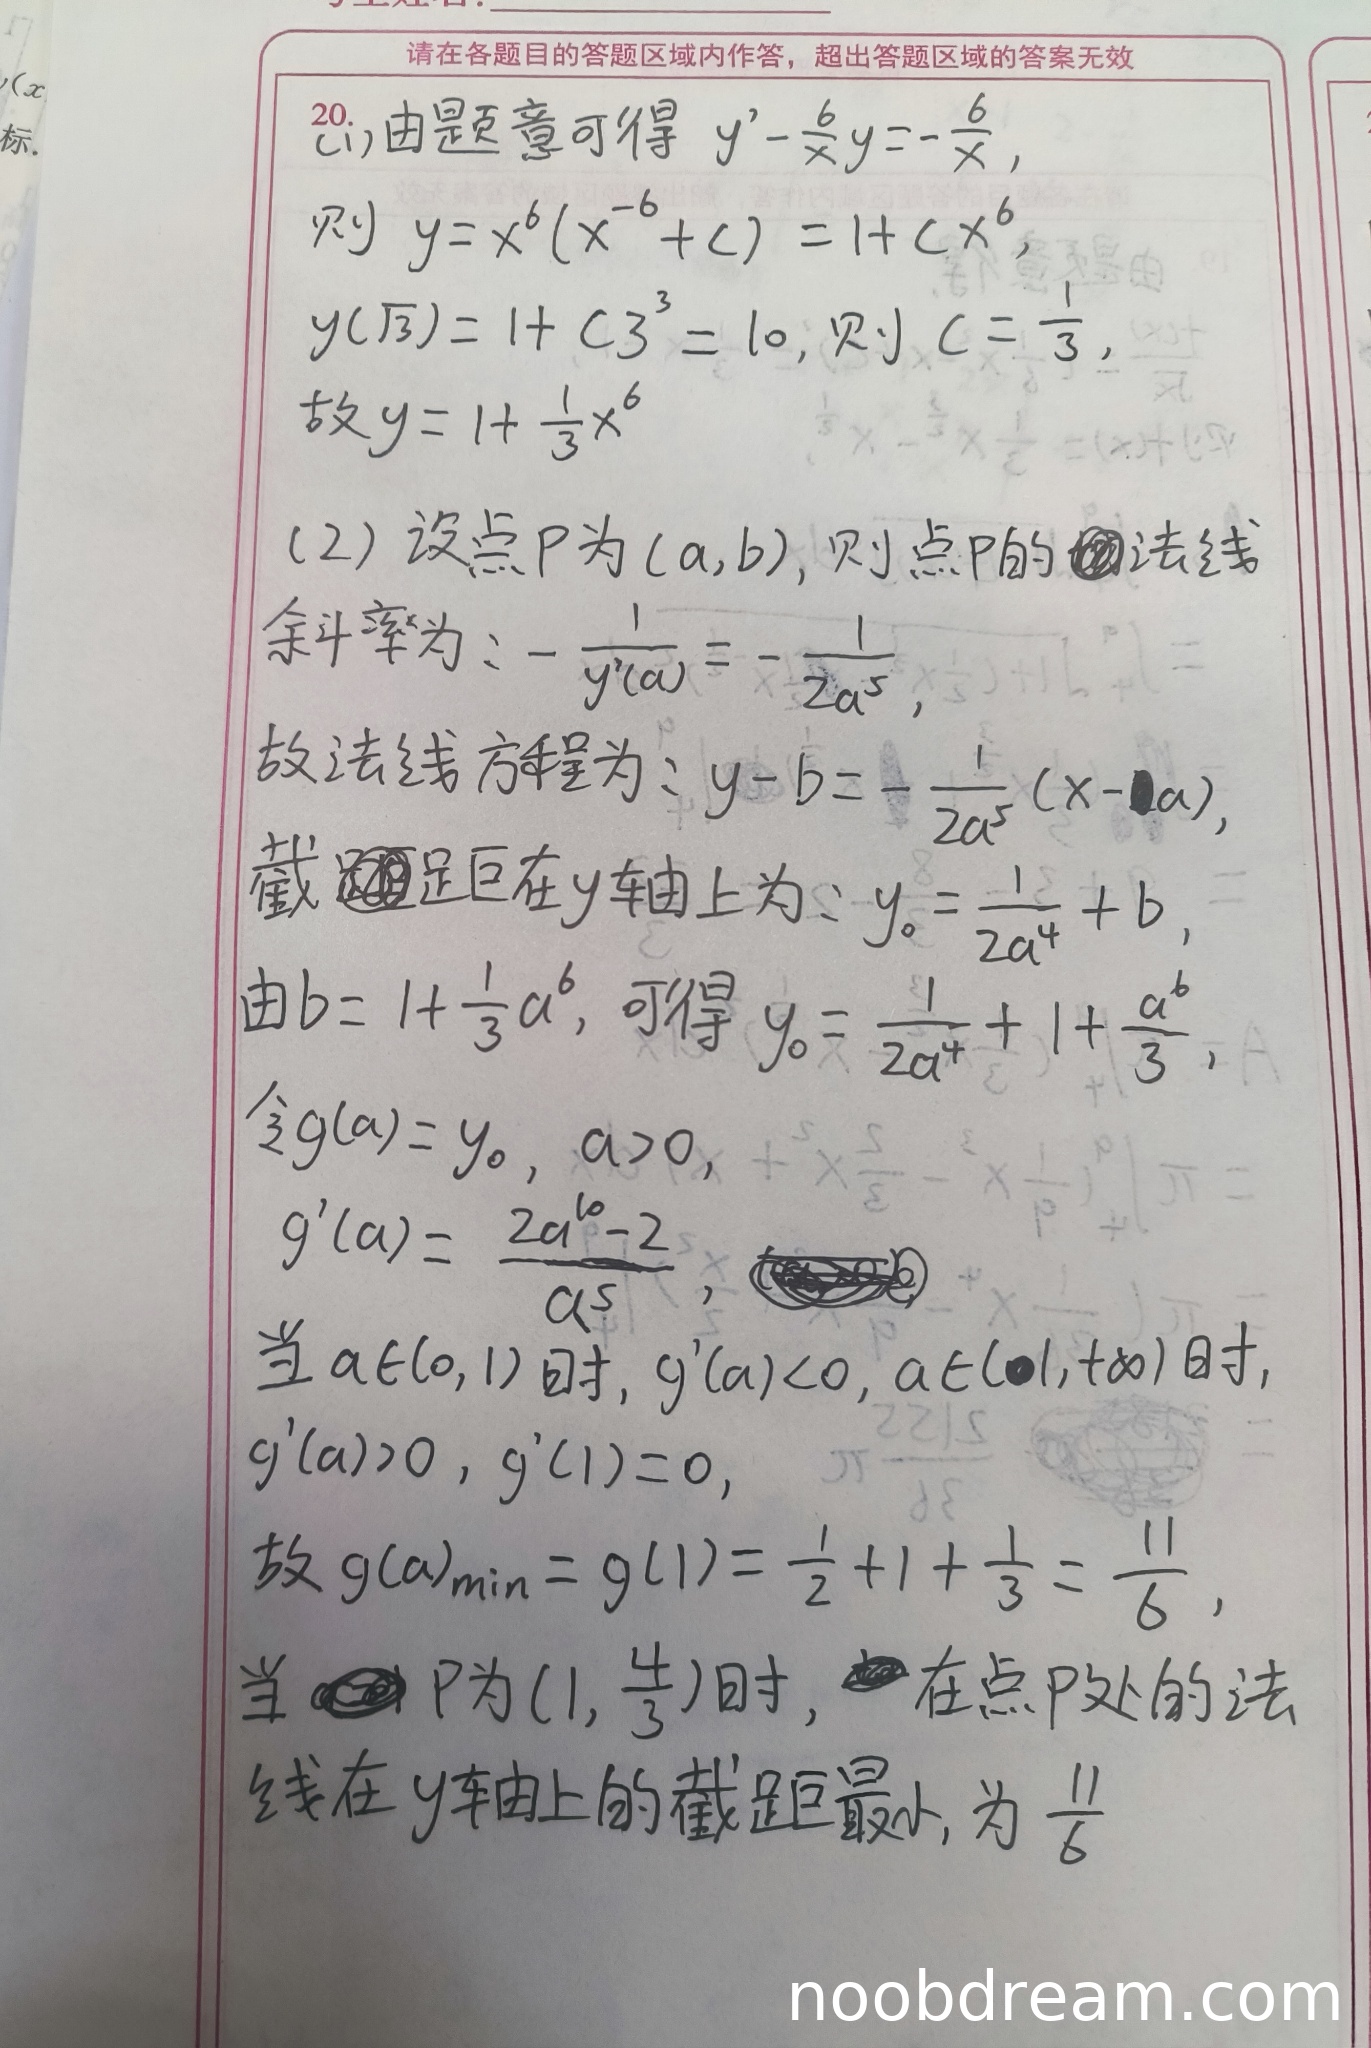 请在各题目的答题区域内作答，超出答题区域的答案无效
20.
(1)由题意可得 y'-6/x y=-6/x,
则 y=x⁶(x⁻⁶+C)=1+Cx⁶,
y(√3)=1+C3³=10, 则 C=1/3,
故y=1+1/3x⁶
(2)设点P为(a,b), 则点P的法线
斜率为: -1/y'(a)=-1/2a⁵,
故法线方程为: y-b=-1/2a⁵(x-a),
截距在y轴上为: y₀=1/2a⁴+b,
由b=1+1/3a⁶, 可得 y₀=1/2a⁴+1+a⁶/3,
令g(a)=y₀, a>0,
g'(a)=2a¹⁰-2/a⁵,
当a∈(0,1)时, g'(a)<0, a∈(1,+∞)时,
g'(a)>0, g'(1)=0,
故g(a)min=g(1)=1/2+1+1/3=11/6,
当P为(1,4/3)时, 在点P处的法
线在y轴上的截距最小, 为11/6
noobdream.com